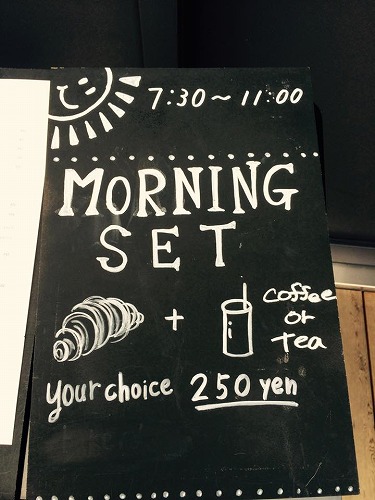 7:30~11:00
MORNING
SET
+
coffee
or
tea
your choice 250 yen